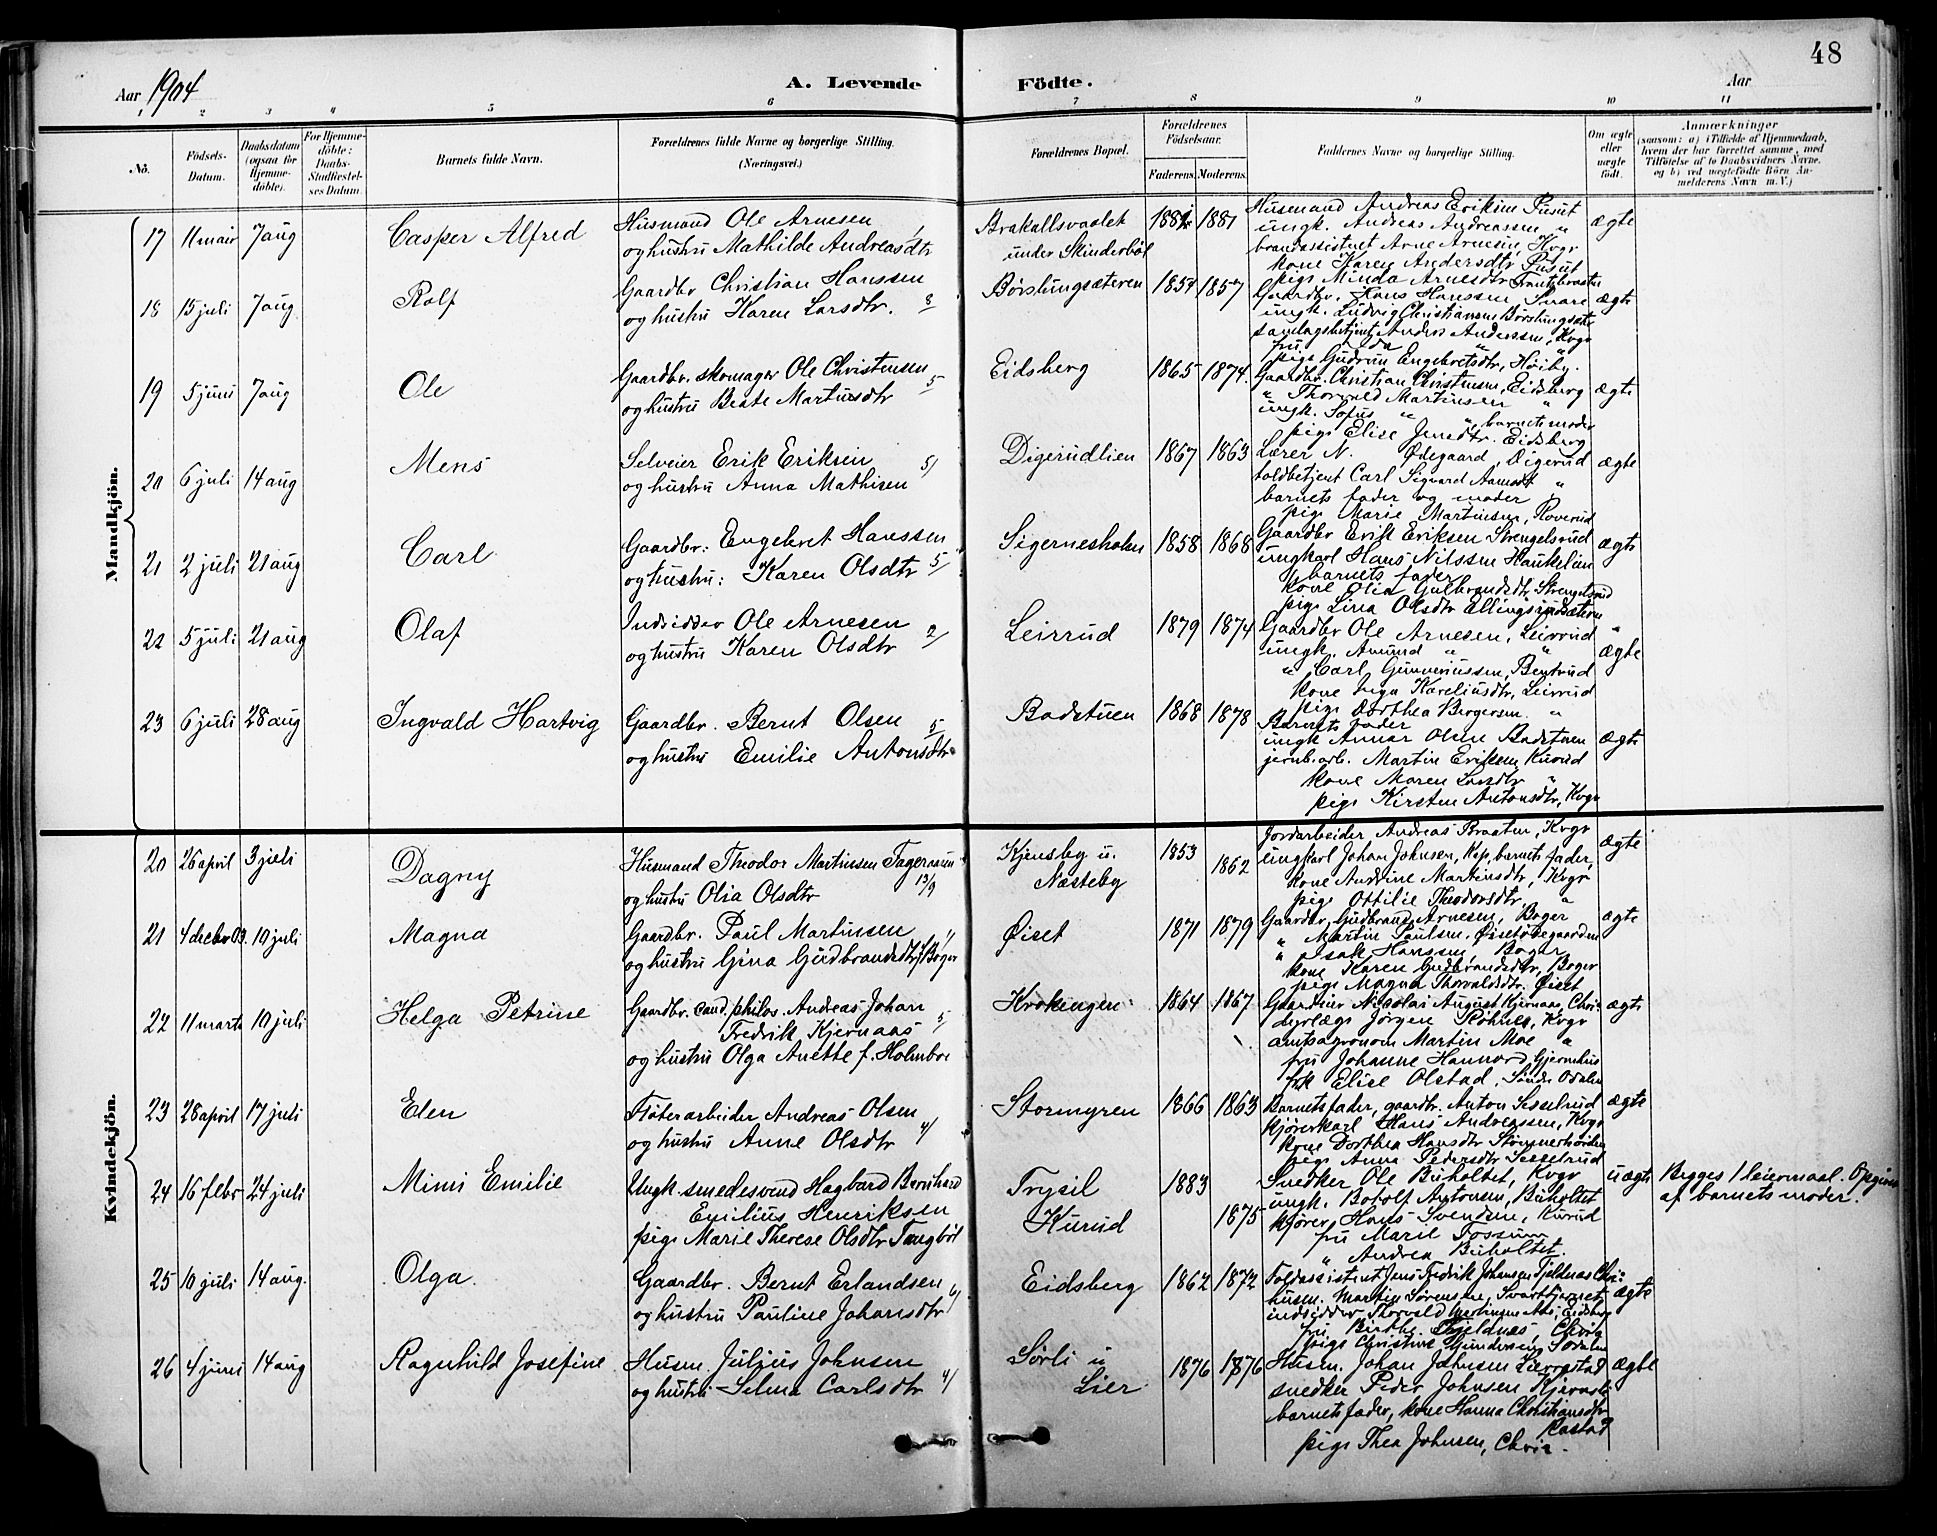 48
Aar 1904
A. Levende Födte.
Aar
1 2 3 4 5 6 7 8 9 10 11
No.
Födsels-Datum.
Daabsdatum (ogsaa for Hjemme-döbte).
For Hjemme-döbte: Daabs-Stadfæstel-ses Datum.
Barnets fulde Navn.
Forældrenes fulde Navne og borgerlige Stilling. (Næringsvei.)
Forældrenes Bopæl.
Forældrenes Födselsaar.
Faderens. Moderens.
Faddernes Navne og borgerlige Stilling.
Om ægte eller uægte födt.
Anmærkninger
(saasom: a) i Tilfælde af Hjemmedaab, hvem der har forrettet samme, med Tilföielse af to Daabsvidners Navne, og b) ved uægtefödte Börn An-melderens Navn m. V.)
Mandkjön.
17 11 mai 7 aug Casper Alfred
Husmand Ole Arnesen
og hustru Mathilde Andreasdtr
under Skinderböl
1881 ægte
Husmand Andreas Eriksen Pusut
ungk. Andreas Andreassen "
brandassistent Arne Arnesen, Kvgr
kone Karen Andersdtr Pusut
pige Minda Arnesdtr
18 15 juli 7 aug Rolf
Gaardbr Christian Hanssen
og hustru Karen Larsdtr. 8
Börslungsæteren 1857 ægte
Gaardbr. Hans Hanssen, Snare
ungk. Ludvig Christiansen Börslungsæt.
samlagsbetjent Anders Anderssen, Kvgr
fru " "
pige Gudrun Engebretsdtr, Höiby.
19 5 juni 7 aug Ole
Gaardbr. skomager Ole Christensen 5
og hustru Beate Martinsdtr
Eidsberg 1865 1874. ægte
Gaardbr. Christian Christensen, Eidsberg
" Thorvald Martinsen "
ungk. Sofus " " barnets moder
pige Elise Jensdtr. Eidsberg
20 6 juli 14 aug Mens
Selveier Erik Eriksen 5/
og hustru Anna Mathisen
Digerudlien 1867 1863 ægte
Lærer N. Ödegaard, Digerud
toldbetjent Carl Sigvard Aamodt "
barnets fader og moder
pige Marie Martinsen, Roverud
21 2 juli 21 aug Carl
Gaardbr: Engebret Hanssen
og hustru: Karen Olsdtr 5/
Sigernesholm 1858 1868 ægte
Gaardbr Erik Eriksen Strengelsrud
ungkarl Hans Nilssen Haukelien
barnets fader
kone Olia Gulbrandsdtr, Strengelsrud
pige Lina Olsdtr Ellingsrudsæteren
22 5 juli 21 aug Olaf
Indsidder Ole Arnesen
og hustru Karen Olsdtr 2/
Leirrud 1879 1874 ægte
Gaardbr Ole Arnesen, Leirrud
ungk. Amund " "
" Carl Gunneriussen, Bentrud
kone Inga Kareliusdtr, Leirrud
pige Dorthea Bergersen. "
23 6 juli 28 aug Ingvald Hartvig
Gaardbr. Bernt Olsen 5/
og hustru Emilie Antonsdtr
Badstuen 1868 1878 ægte
Barnets fader
ungk Annar Olsen Badstuen
jernb.arb. Martin Eriksen Kurud
kone Maren Larsdtr "
pige Kirsten Antonsdtr, Kvgr
Kvindekjön.
20 26 april 3 juli Dagny
Husmand Theodor Martinsen Tagernæs
og hustru Olia Olsdtr 13/9
Kjensby u. Næsteby
1853 1862 ægte
Jordarbeider Andreas Braaten, Kvgr
ungkarl Johan Johnsen, Kvp, barnets fader,
kone Andrine Martinsdtr, Kvgr
pige Ottilie Theodorsdtr, "
21 4 decbr 03. 10 juli Magna
Gaardbr. Paul Martinsen
og hustru Gina Gudbrandsdtr, Boger
Öiset 1871 1879 ægte
Gaardbr. Gudbrand Arnesen, Boger
" Martin Paulsen. Öisetödegaarden
" Isak Hanssen, Boger
kone Karen Gudbrandsdtr, Boger
pige Magna Thorvaldsdtr. Öiset
22 11 marts 10 juli Helga Petrine
Gaardbr. cand. philos. Andreas Johan 5
Fredrik Kjernaas
og hustru Olga Anette f. Holmboe
Krokengen 1864 1867 ægte
Gaardeier Nicolai August Kjernaas, Chri-
dyrlæge Jörgen Röhnes, Kvgr
amtsagronom Martin Moe "
fru Johanne Hannord, Gjernshus
frk Elise Olstad, Söndre Odalen
23 28 april 17 juli Elen
Flöterarbeider Andreas Olsen
og hustru Anne Olsdtr 4/
Stormyren 1866 1863 ægte
Barnets fader, gaardbr. Anton Sesselrud
kjörerkarl Hans Andreassen, Kvgr
kone Dorthea Hansdtr
pige Anna Pedersdtr Sesselrud
24 16 febr 24 juli Mimi Emilie
Ungk. smedesvend Hagbard Bernhard
Emilius Henriksen
pige Marie Therese Olsdtr Tangböl
Trysil
Kurud
1883 1875 uægte
Snedker Ole Buholtet, Kvgr
ungk. Botolf Antonsen, Buholtet
kjörer, Hans Svendsen, Kurud
fru Marie Fossum
" Andrea Buholtet.
Begges 1 leiermaal. Opgivet
af barnets moder.
25 10 juli 14 aug. Olga
Gaardbr. Bernt Erlandsen
og hustru Pauline Johansdtr 6/
Eidsberg 1862 1872 ægte
Toldassistent Jens Fredrik Johansen Fjeldnæs Chr:
husm. Martin Sörensen, Svarttjernet
indsidder Thorvald Martinsen Eidsberg
fru Birthe Fjeldnæs, Chria
pige Christine Gundersen, S. Odalen
26 4 juni 14 aug Ragnhild Josefine
Husm. Julius Johnsen
og hustru Selma Carlsdtr 4/
Sörli u Lier
1876 1876 ægte
Husm. Johan Johnsen Lierrastad
snedker Peder Johnsen Kjernsli
barnets fader, kone Hanna Christiansdtr
Rastad
pige Thea Johnsen, Chria.